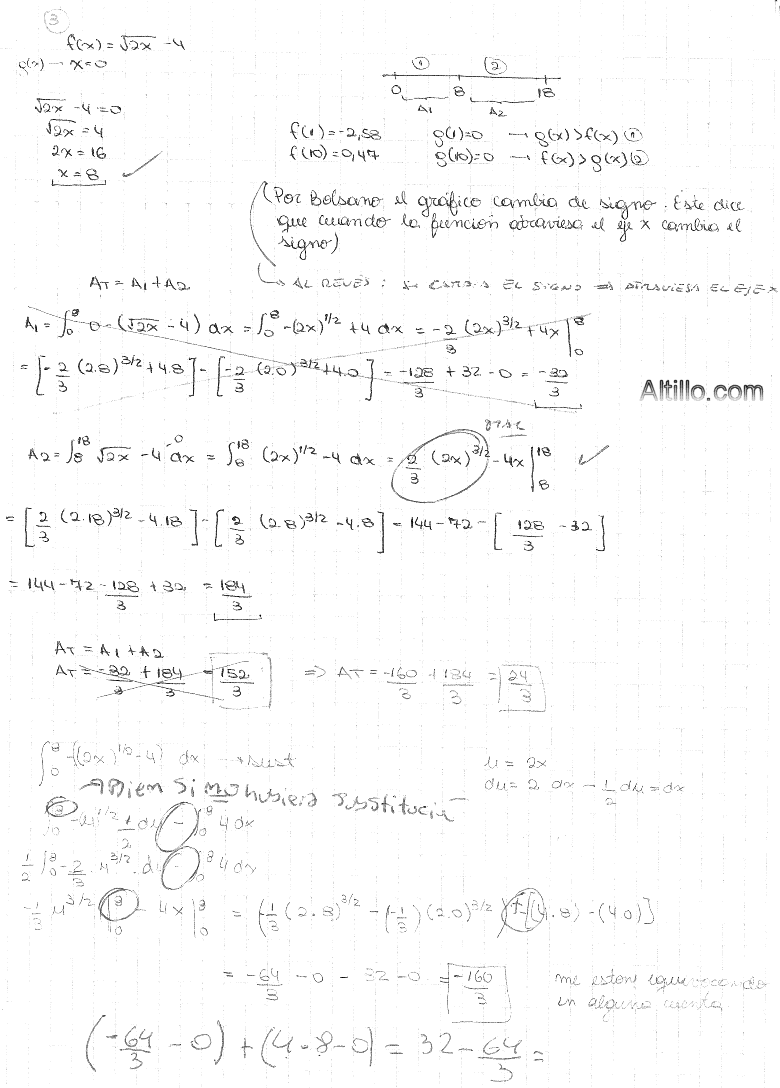 3
f(x) = √2x - 4
g(x) → x=0
√2x - 4 = 0
√2x = 4
2x = 16
x = 8 ✓
① ②
0 8 18
A1 A2
f(1) = -2,58 g(1)=0 → g(x) > f(x) ①
f(10) = 0,47 g(10)=0 → f(x) > g(x) ②
(Por Bolsano el gráfico cambia de signo. Este dice
que cuando la función atraviesa el eje x cambia el
signo)
↳ AL REVÉS: si CAMBIA EL SIGNO ⇒ ATRAVIESA EL EJE X
AT = A1 + A2
A1 = ∫₀⁸ 0 - (√2x - 4) dx = ∫₀⁸ -(2x)^1/2 + 4 dx = -2/3 (2x)^3/2 + 4x |₀⁸
= [-2/3 (2.8)^3/2 + 4.8] - [-2/3 (2.0)^3/2 + 4.0] = -128/3 + 32 - 0 = -32/3
Altillo.com
A2 = ∫₈¹⁸ √2x - 4 - 0 dx = ∫₈¹⁸ (2x)^1/2 - 4 dx = 2/3 (2x)^3/2 - 4x |₈¹⁸ ✓
= [2/3 (2.18)^3/2 - 4.18] - [2/3 (2.8)^3/2 - 4.8] = 144 - 72 - [128/3 - 32]
= 144 - 72 - 128/3 + 32 = 184/3
AT = A1 + A2
AT = -32/3 + 184/3 = 152/3 ⇒ AT = -160/3 + 184/3 = 24/3
∫₀⁸ -((2x)^1/2 - 4) dx → sust
u = 2x
du = 2 dx - 1/2 du = dx
Bien si hubiera sustitución
∫₀⁸ -u^1/2 1/2 du - ∫₀⁸ 4 dx
1/2 ∫₀⁸ -2/3 . u^3/2 . du - ∫₀⁸ 4 dx
-1/3 u^3/2 |₀⁸ - 4x |₀⁸ = (-1/3 (2.8)^3/2 - (-1/3) (2.0)^3/2) + [(4.8) - (4.0)]
= -64/3 - 0 - 32 - 0 = -160/3
me estoy equivocando
en alguna cuenta
(-64/3 - 0) + (4 · 8 - 0) = 32 - 64/3 =